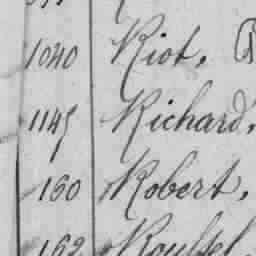 1040 Riot,
1145 Richard,
160 Robert,
162 Roussel